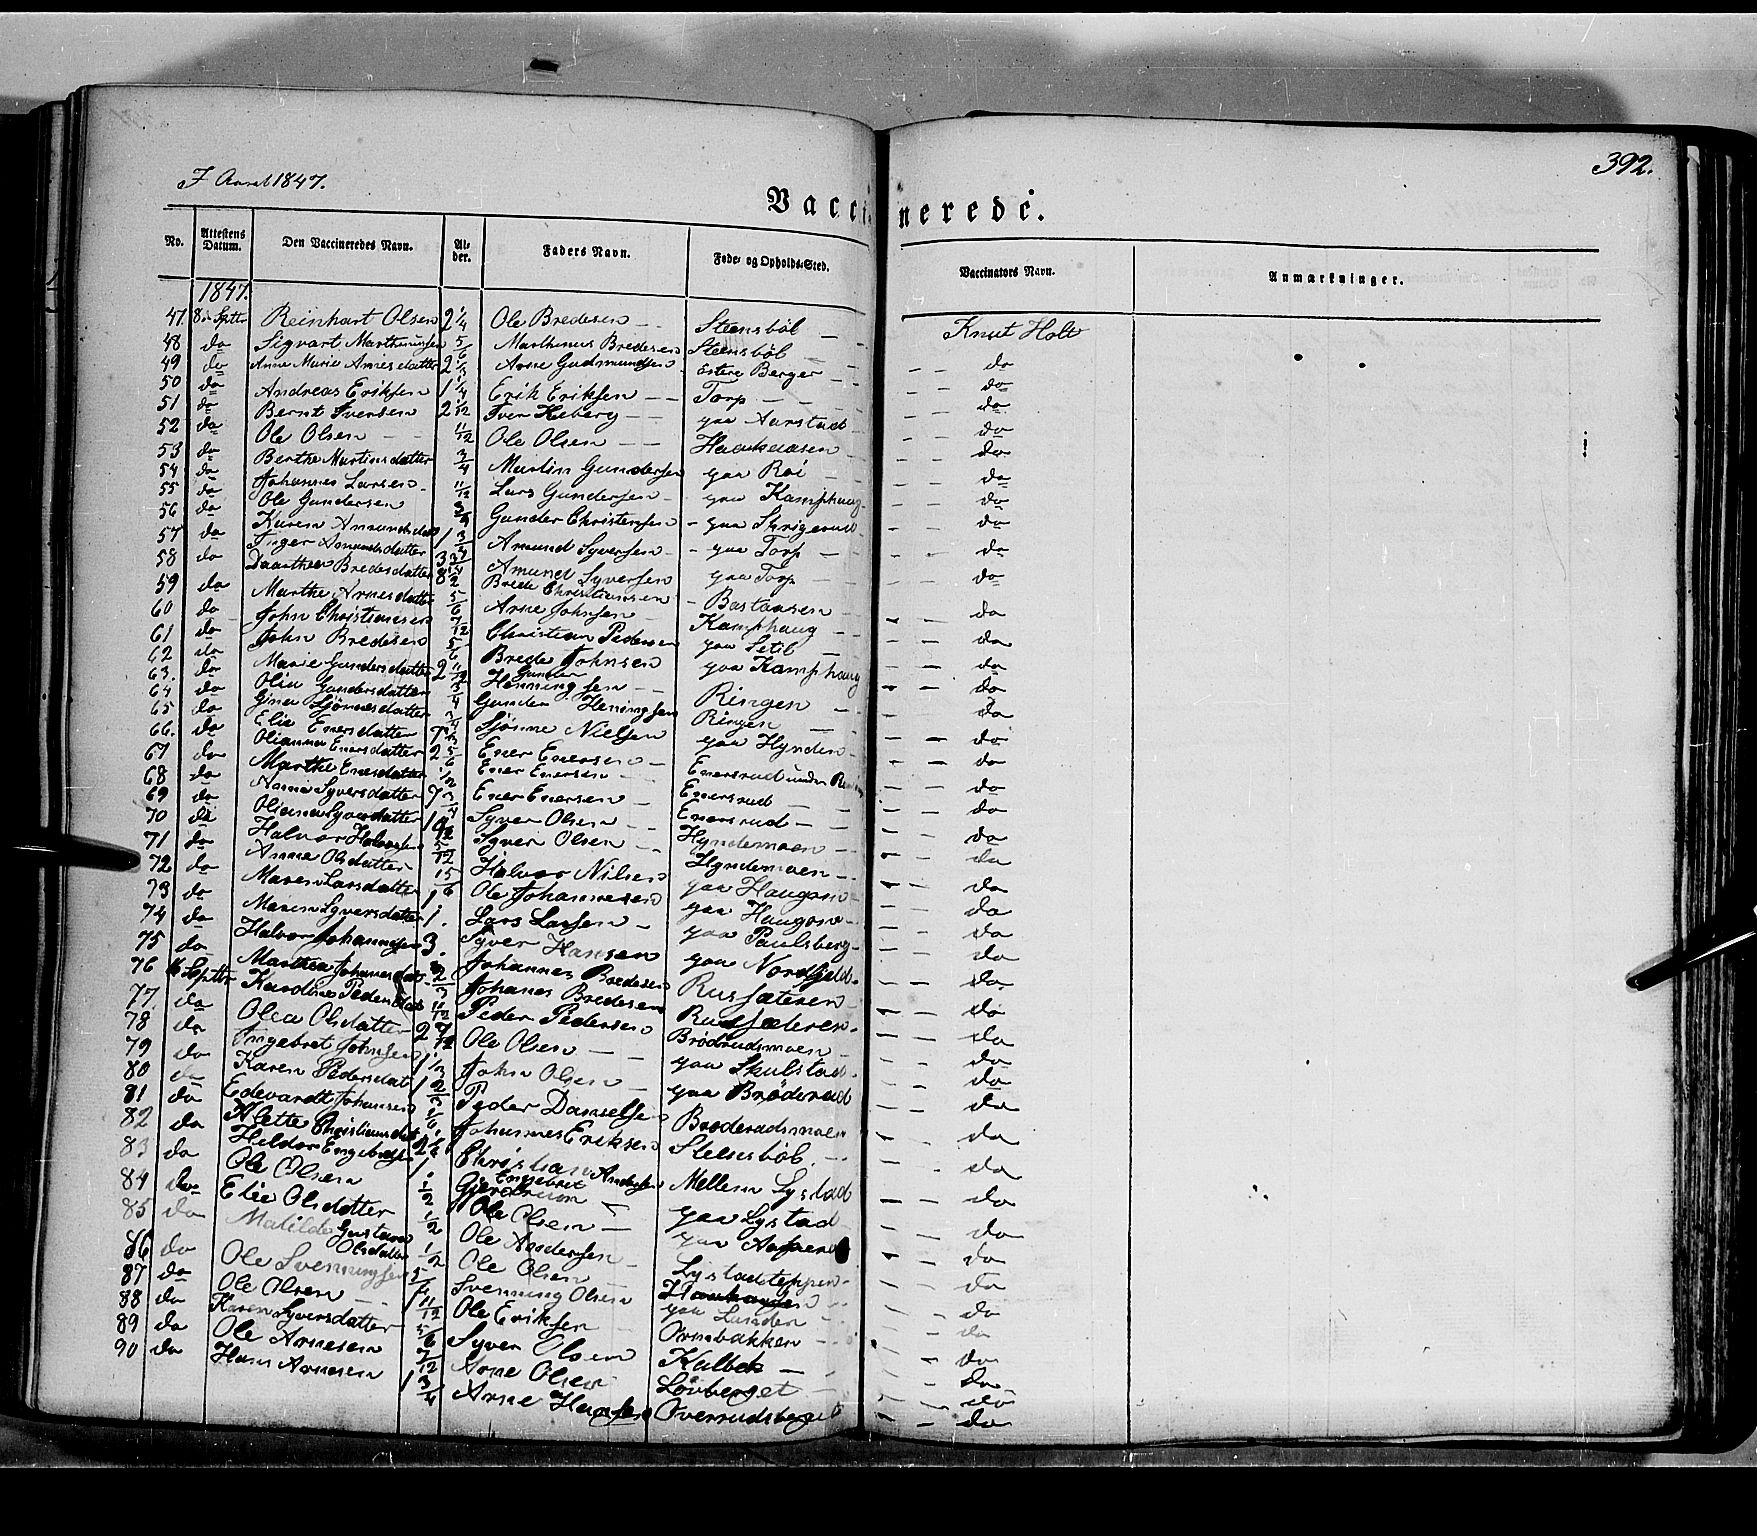 392.
I Aaret 1847.
Vaccinerede.
No. Attestens Datum. Den Vaccineredes Navn. Alder. Faders Navn. Føde- og Opholds-Sted. Vaccinators Navn. Anmærkninger.
1847.
47. 8de Septbr Reinhart Olsen 2 1/4 Ole Bredesen — Steensböl — Knut Holt
48 do Sigvart Marthinusen 5/6 Marthinus Bredesen Steensböl — — do
49 do Anne Marie Arnesdatter 2 Arne Gudmundsen Berger — — do
50 do Andreas Eriksen 1 1/4 Erik Eriksen — Torp — — do
51 do Bernt Iversen 2 1/12 Iver — paa Aarstad — do
52 do Ole Olsen — 11/12 Ole Olsen — — do
53 do Berthe Martinsdatter 3/4 Martin Gundersen paa Roi — do
54 do Johannes Larsen 11/12 Lars Gundersen — paa Kamphaug — do
55 do Ole Gundersen Gunder Christensen — paa Skrigerud — do
56 do Karen Amundsdat 1 3/4 Amund Syversen — paa Torp — do
57 do Inger Amundsdatter 3 Amund Syversen paa Torp — do
58 do Daarthea Bredesdatter 8 1/2 Brede Christiansen — Bastaasen — do
59 do Marthe Arnesdatter 5/6 Arne Johnsen Kamphaug — — do
60 do John Christiansen 7/12 Christian Pedersen paa Setil — do
61 do John Bredesen 5/6 Brede Johnsen paa Kamphaug — do
62 do Marie Gundersdatter 2 11/12 Gunder Henningsen — Ringen — do
63. do Olia Gundersdatter 3/4 Gunder Heningsen Ringen — do
64 do Gina Sjönnesdatter 3/4 Sjönne Nielsen paa Hynden — do
65 do Elie Enersdatter 7 Ener Enersen — Enersrud under — do
66. do Olianna Enersdatter 2 5/6 Ener Enersen — Enersrud — do
67 do Marthe Enersdatter 1/2 Ener Enersen — Enersrud — — do
68 do Anne Syversdatter 7 3/4 Syver Olsen — Hyndemoen — do
69 do Oliana Syversdatter Syver Olsen — Hyndemoen — do
70 do Halvor Halvorsen 5/12 Halvor Nilsen paa Haugsrud — do
71 do Anne Olsdatter Ole Johannesen paa Haugsrud — do
72 do Maren Larsdatter 1 Lars Larsen — paa Paulsberg — do
73 do Maren Syversdatter 1. Syver Hansen paa Nordfjeld — do
74 do Halvor Johannesen 3. Johannes Bredesen Rudsæteren — do
75 do Marthea Johannesdat 2/3 Johanes Bredesen Rudsæteren — do
76 Septbr Karoline Pedersdat 11/12 Peder Pedersen Brödrudsmoen — do
77. do Olea Olsdatter 2 7/12 Ole Olsen — paa Skulstad — do
78 do Ingebret Johnsen 1 1/3 John Olsen — paa Bröderud — do
79 do Karen Pedersdat 1 2/3 Peder Danielsen Broderudsmoen — do
80 do Edevardt Johansen 1/6 Johannes Eriksen Steensböl — do
81 do Alette Christiansdat Christian Andersen Mellem Lystad — do
82 do Heldor Engebretsen 1 Engebret Gjerdrum paa Lystad — do
83 do Ole Olsen 1/2 Ole Olsen — paa — do
84 do Elie Olsdatter 1/2 Ole Andersen Lystadteppen — do
85 do Matilde Gustava Olsdatter 1/2 Ole Olsen — — do
86 do Ole Svenningsen Svenning Olsen paa Lunden — do
87 do Ole Olsen — 11/12 Ole Eriksen Ormbakken — do
88 do Karen Syversdatter 5/6 Syver Olsen Kulbek — do
89 do Ole Arnesen 7/12 Arne Olsen Lövberget — do
90 do Hans Arnesen 1 3/4 Arne Hansen Overrudsberget — do